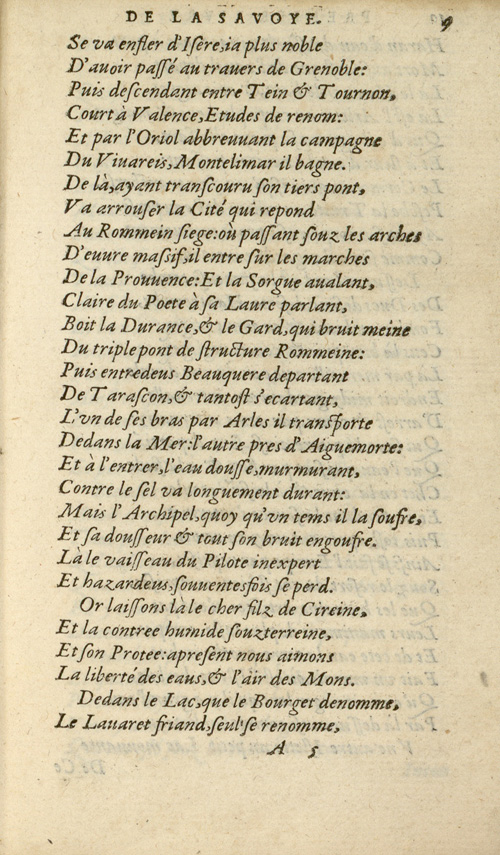 DE LA SAVOYE. 9
Se va enfler d'Iſere,ia plus noble
D'auoir paſſé au trauers de Grenoble:
Puis deſcendant entre Tein & Tournon,
Court à Valence,Etudes de renom:
Et par l'Oriol abbreuuant la campagne
Du Viuareis,Montelimar il bagne.
De là,ayant tranſcouru ſon tiers pont,
Va arrouſer la Cité qui repond
Au Rommein ſiege:où paſſant ſouz les arches
D'euure maſſif,il entre ſur les marches
De la Prouuence:Et la Sorgue aualant,
Claire du Poete à ſa Laure parlant,
Boit la Durance,& le Gard,qui bruit meine
Du triple pont de ſtructure Rommeine:
Puis entredeus Beauquere departant
De Taraſcon,& tantoſt s'ecartant,
L'vn de ſes bras par Arles il tranſporte
Dedans la Mer:l'autre pres d'Aiguemorte:
Et à l'entrer,l'eau douſſe,murmurant,
Contre le ſel va longuement durant:
Mais l'Archipel,quoy qu'vn tems il la ſoufre,
Et ſa douſſeur & tout ſon bruit engoufre.
Là le vaiſſeau du Pilote inexpert
Et hazardeus,ſouuentesfois ſe perd.
Or laiſſons là le cher filz de Cireine,
Et la contree humide ſouzterreine,
Et ſon Protee:apreſent nous aimons
La liberté des eaus,& l'air des Mons.
Dedans le Lac,que le Bourget denomme,
Le Lauaret friand,ſeul ſe renomme,
A 5